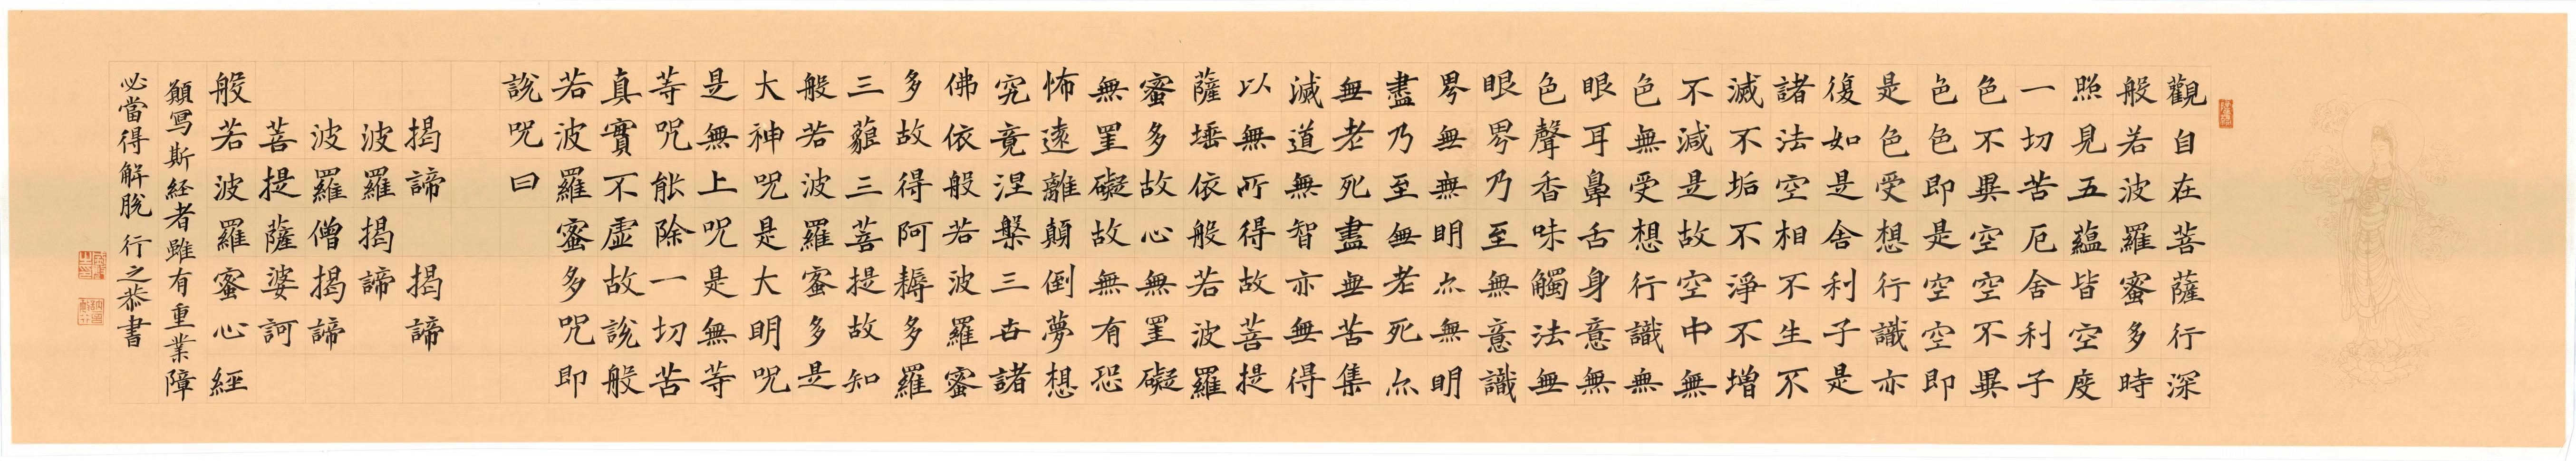 觀自在菩薩行深
般若波羅蜜多時
照見五蘊皆空度
一切苦厄舍利子
色不異空空不異
色色即是空空即
是色受想行識亦
復如是舍利子是
諸法空相不生不
滅不垢不淨不增
不減是故空中無
色無受想行識無
眼耳鼻舌身意無
色聲香味觸法無
眼界乃至無意識
界無無明亦無明
盡乃至無老死亦
無老死盡無苦集
滅道無智亦無得
以無所得故菩提
薩埵依般若波羅
蜜多故心無罣礙
無罣礙故無有恐
怖遠離顛倒夢想
究竟涅槃三世諸
佛依般若波羅蜜
多故得阿耨多羅
三藐三菩提故知
般若波羅蜜多是
大神咒是大明咒
是無上咒是無等
等咒能除一切苦
真實不虛故說般
若波羅蜜多咒即
說咒曰
揭諦 揭諦
波羅揭諦
波羅僧揭諦
菩提薩婆訶
般若波羅蜜心經
願寫斯經者雖有重業障
必當得解脫 行之恭書